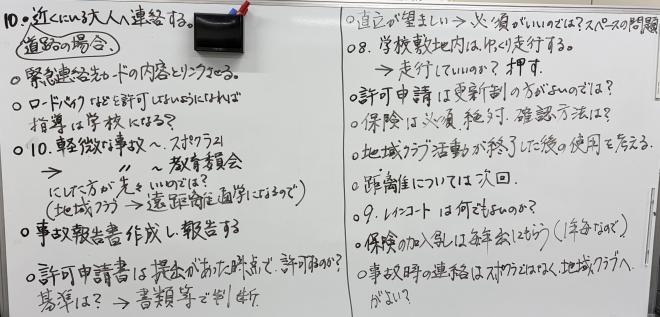 10.・近くにいる大人へ連絡する。
道路の場合.
○緊急連絡先カードの内容とリンクさせる。
○ロードバイクなどを許可しないようになれば
指導は学校になる?
○10.軽微な事故〜スポクラ21
→ 〃 〜教育委員会
にした方が先をいいのでは?
(地域クラブ→遠距離通学になるので)
○事故報告書作成し、報告する
○許可申請書は提出があった時点で、許可するのか?
基準は?→書類等で判断.
○直立が望ましい→必須がいいのでは?スペースの問題
○8.学校敷地内はゆっくり走行する。
→走行していいのか?押す.
○許可申請は更新制の方がよいのでは?
○保険は必須.絶対.確認方法は?
○地域クラブ活動が終了した後の使用を考える.
○距離については次回.
○9.レインコートは何でもよいのか?
○保険の加入は毎年出してもらう(1年毎なので)
○事故時の連絡はスポクラではなく、地域クラブへ
がよい?